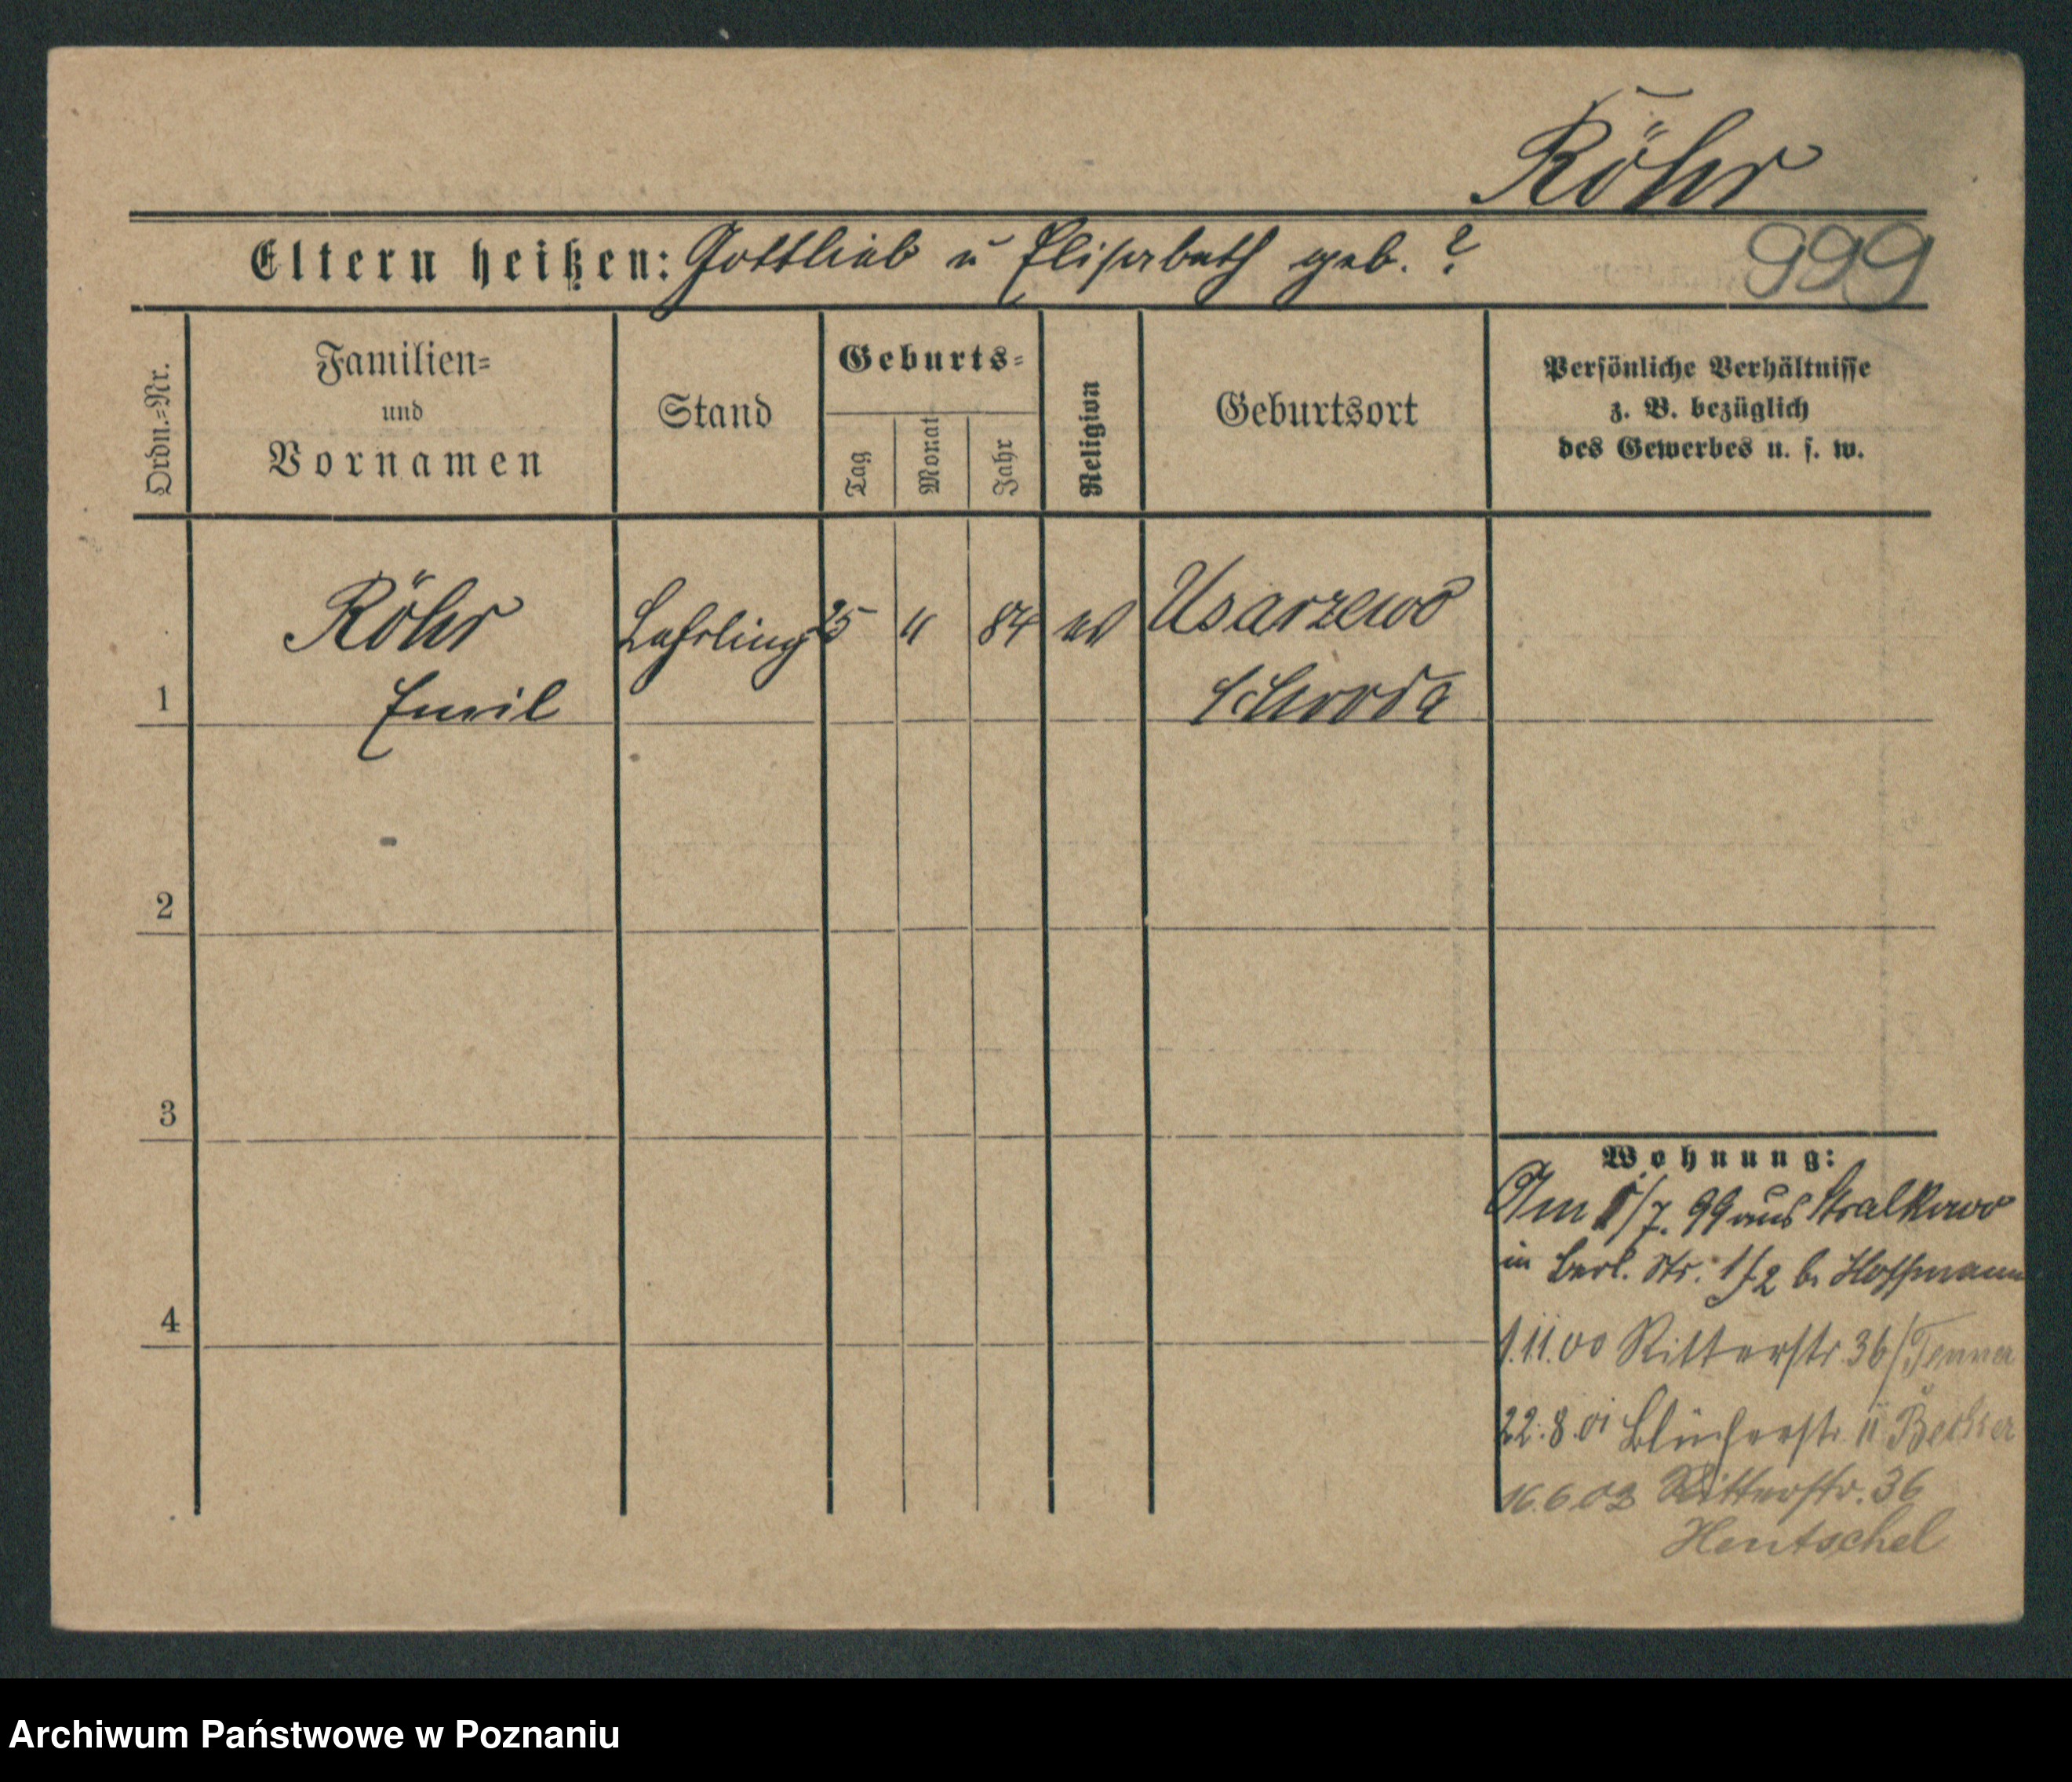 Röhr
Eltern heißen: Gottlieb u Elisabeth geb. ?
999
Ordn.=Nr.
Familien=
und
Vornamen
Stand
Geburts=
Tag
Monat
Jahr
Religion
Geburtsort
Persönliche Verhältnisse
z. B. bezüglich
des Gewerbes u. s. w.
1
Röhr
Emil
Lehrling
25
84
ev
Usarzewo
Schroda
2
3
4
Wohnung:
Am /7. 99 aus Stralkowo
in Berl. Str. 1/2 b. Hoffmann
1.11.00 Ritterstr. 36/ Tenner
22.8.01 Blücherstr. 11 Becker
16.6.02 Ritterstr. 36
Hentschel
Archiwum Państwowe w Poznaniu